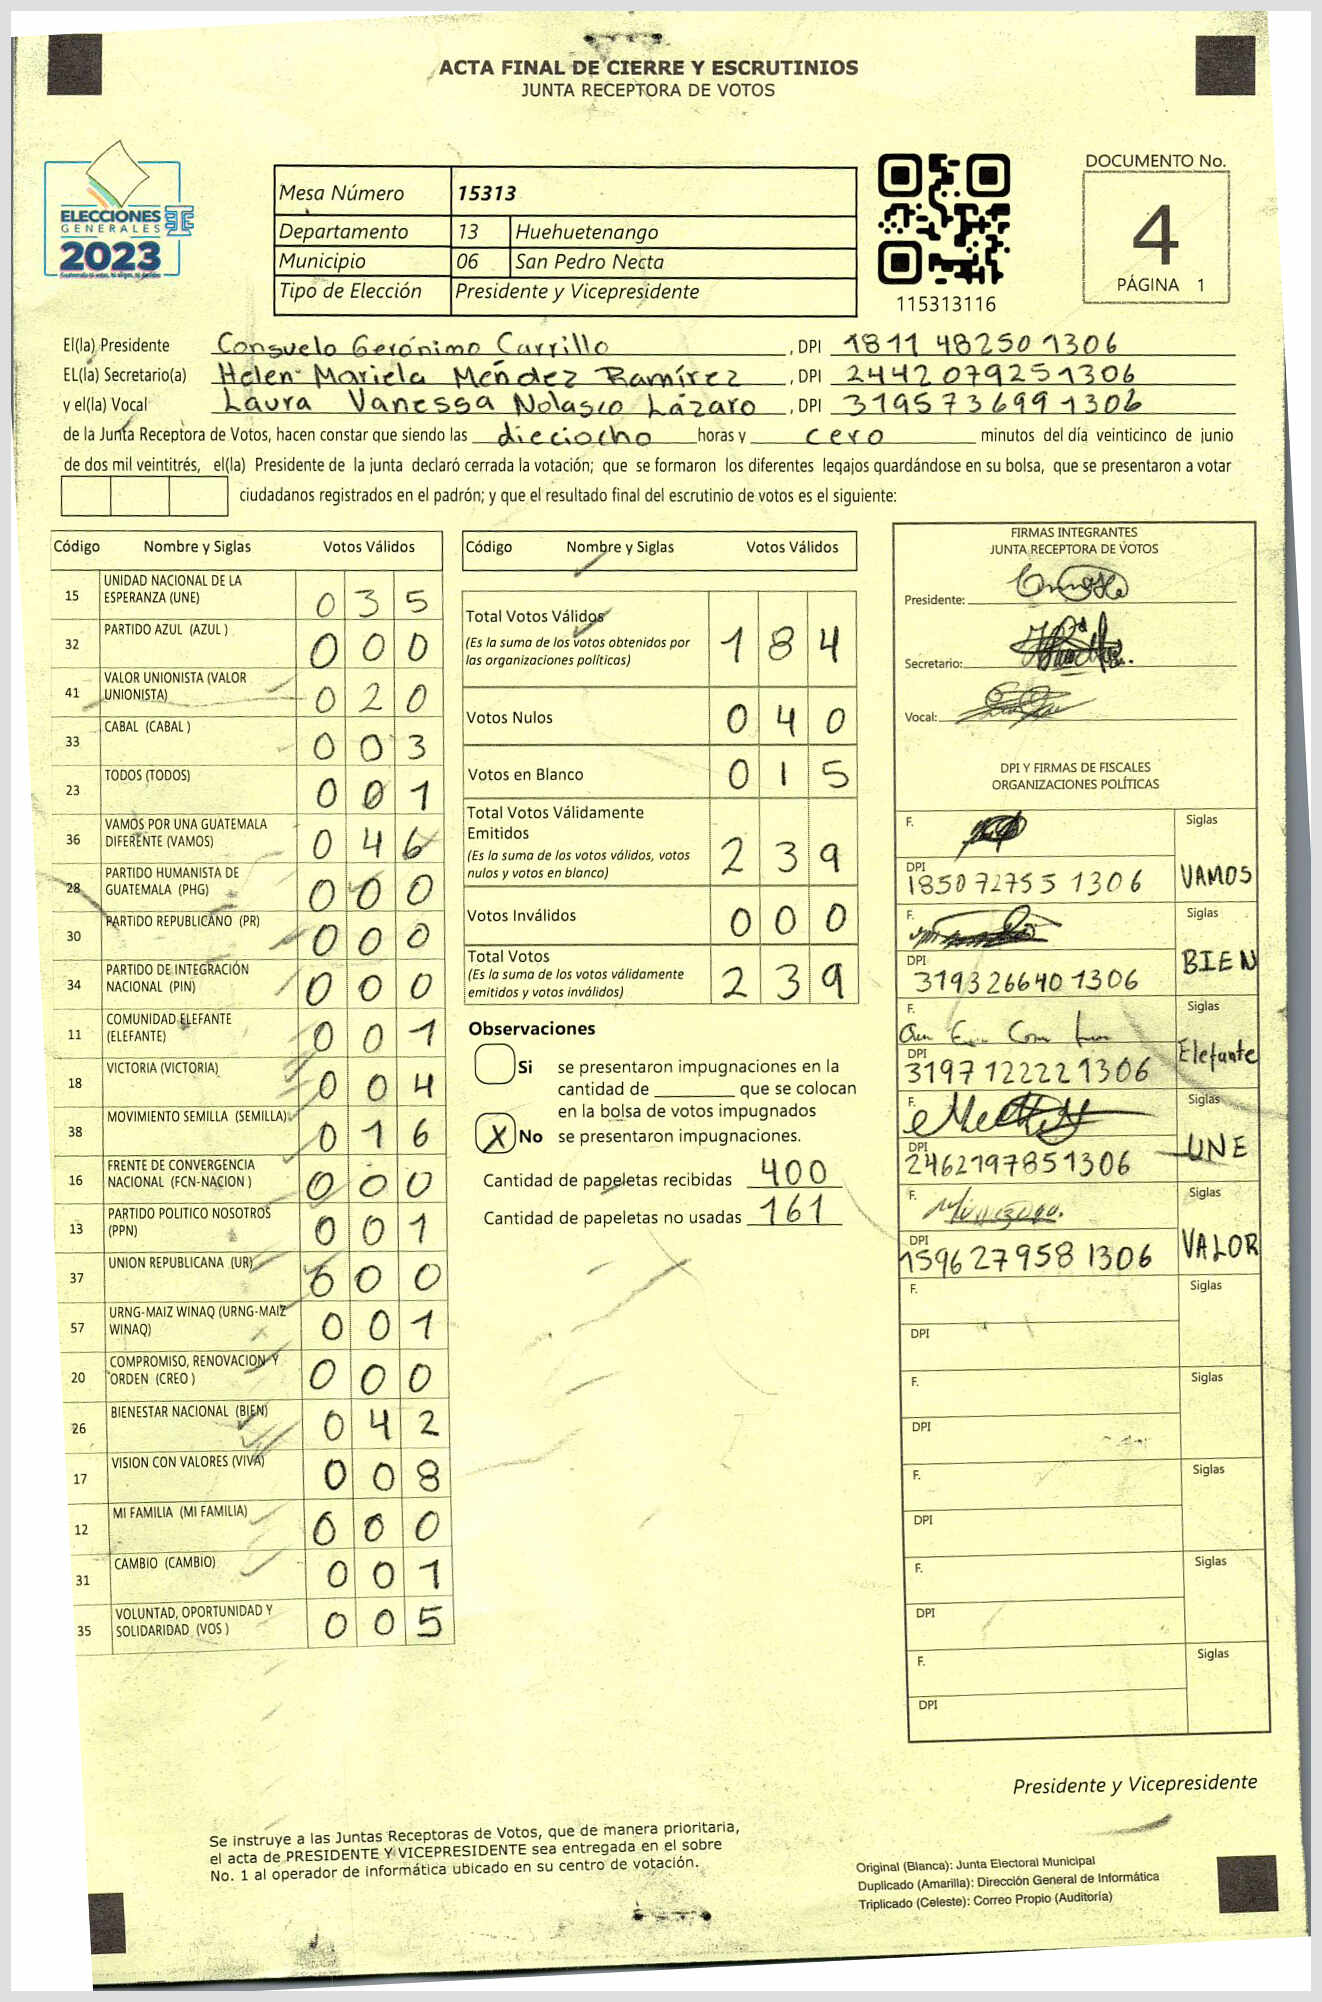 ACTA FINAL DE CIERRE Y ESCRUTINIOS
JUNTA RECEPTORA DE VOTOS
ELECCIONES
GENERALES
2023
Mesa Número 15313
Departamento 13 Huehuetenango
Municipio 06 San Pedro Necta
Tipo de Elección Presidente y Vicepresidente
115313116
DOCUMENTO No.
4
PÁGINA 1
El(la) Presidente Consuelo Gerónimo Carrillo, DPI 1811 48250 1306
EL(la) Secretario(a) Helen Mariela Méndez Ramírez, DPI 2442079251306
y el(la) Vocal Laura Vanessa Nolasco Lázaro, DPI 3195736991306
de la Junta Receptora de Votos, hacen constar que siendo las dieciocho horas y cero minutos del día veinticinco de junio
de dos mil veintitrés, el(la) Presidente de la junta declaró cerrada la votación; que se formaron los diferentes legajos guardándose en su bolsa, que se presentaron a votar
ciudadanos registrados en el padrón; y que el resultado final del escrutinio de votos es el siguiente:
Código Nombre y Siglas Votos Válidos
15 UNIDAD NACIONAL DE LA ESPERANZA (UNE) 0 3 5
32 PARTIDO AZUL (AZUL ) 0 0 0
41 VALOR UNIONISTA (VALOR UNIONISTA) 0 2 0
33 CABAL (CABAL ) 0 0 3
23 TODOS (TODOS) 0 0 1
36 VAMOS POR UNA GUATEMALA DIFERENTE (VAMOS) 0 4 6
28 PARTIDO HUMANISTA DE GUATEMALA (PHG) 0 0 0
30 PARTIDO REPUBLICANO (PR) 0 0 0
34 PARTIDO DE INTEGRACIÓN NACIONAL (PIN) 0 0 0
11 COMUNIDAD ELEFANTE (ELEFANTE) 0 0 1
18 VICTORIA (VICTORIA) 0 0 4
38 MOVIMIENTO SEMILLA (SEMILLA) 0 1 6
16 FRENTE DE CONVERGENCIA NACIONAL (FCN-NACION ) 0 0 0
13 PARTIDO POLITICO NOSOTROS (PPN) 0 0 1
37 UNION REPUBLICANA (UR) 0 0 0
57 URNG-MAIZ WINAQ (URNG-MAIZ WINAQ) 0 0 1
20 COMPROMISO, RENOVACION Y ORDEN (CREO ) 0 0 0
26 BIENESTAR NACIONAL (BIEN) 0 4 2
17 VISION CON VALORES (VIVA) 0 0 8
12 MI FAMILIA (MI FAMILIA) 0 0 0
31 CAMBIO (CAMBIO) 0 0 1
35 VOLUNTAD, OPORTUNIDAD Y SOLIDARIDAD (VOS ) 0 0 5
Código Nombre y Siglas Votos Válidos
Total Votos Válidos
(Es la suma de los votos obtenidos por
las organizaciones políticas) 1 8 4
Votos Nulos 0 4 0
Votos en Blanco 0 1 5
Total Votos Válidamente
Emitidos
(Es la suma de los votos válidos, votos
nulos y votos en blanco) 2 3 9
Votos Inválidos 0 0 0
Total Votos
(Es la suma de los votos válidamente
emitidos y votos inválidos) 2 3 9
Observaciones
Si se presentaron impugnaciones en la
cantidad de ________ que se colocan
en la bolsa de votos impugnados
X No se presentaron impugnaciones.
Cantidad de papeletas recibidas 400
Cantidad de papeletas no usadas 161
FIRMAS INTEGRANTES
JUNTA RECEPTORA DE VOTOS
Presidente:
Secretario:
Vocal:
DPI Y FIRMAS DE FISCALES
ORGANIZACIONES POLÍTICAS
F. Siglas
DPI 185072755 1306 VAMOS
F. Siglas
DPI 319326640 1306 BIEN
F. Siglas
DPI 3197 122221306 Elefante
F. Siglas
DPI 2462197851306 UNE
F. Siglas
DPI 159627958 1306 VALOR
F. Siglas
DPI
F. Siglas
DPI
F. Siglas
DPI
F. Siglas
DPI
F. Siglas
DPI
Presidente y Vicepresidente
Se instruye a las Juntas Receptoras de Votos, que de manera prioritaria,
el acta de PRESIDENTE Y VICEPRESIDENTE sea entregada en el sobre
No. 1 al operador de informática ubicado en su centro de votación.
Original (Blanca): Junta Electoral Municipal
Duplicado (Amarilla): Dirección General de Informática
Triplicado (Celeste): Correo Propio (Auditoria)